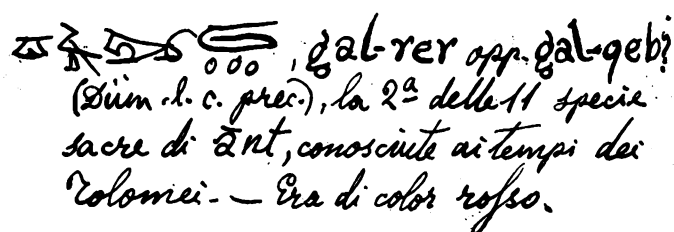 , gal-rer opp. gal-qeb?
(Düm. l. c. prec.), la 2ª delle 11 specie
sacre di ānt, conosciute ai tempi dei
Tolomei. — Era di color rosso.